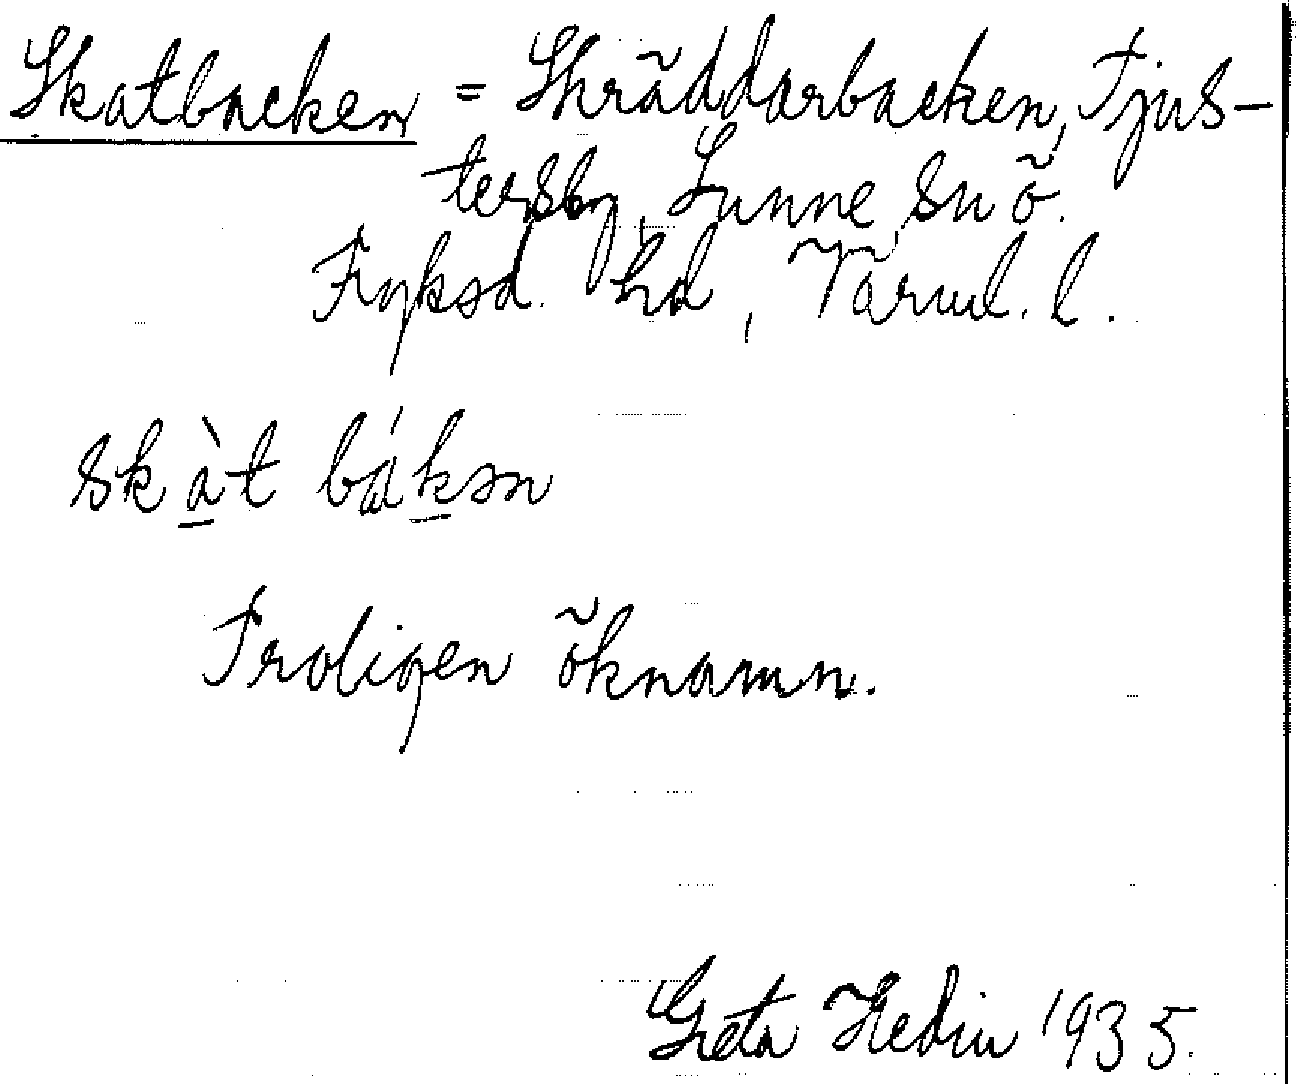 Skatbacken = Skräddarbacken, Tjus-
tersby, Sunne snö.
Fryksd. hd, Värml. l.
skàt bákən
Troligen öknamn.
Greta Hedin 1935.